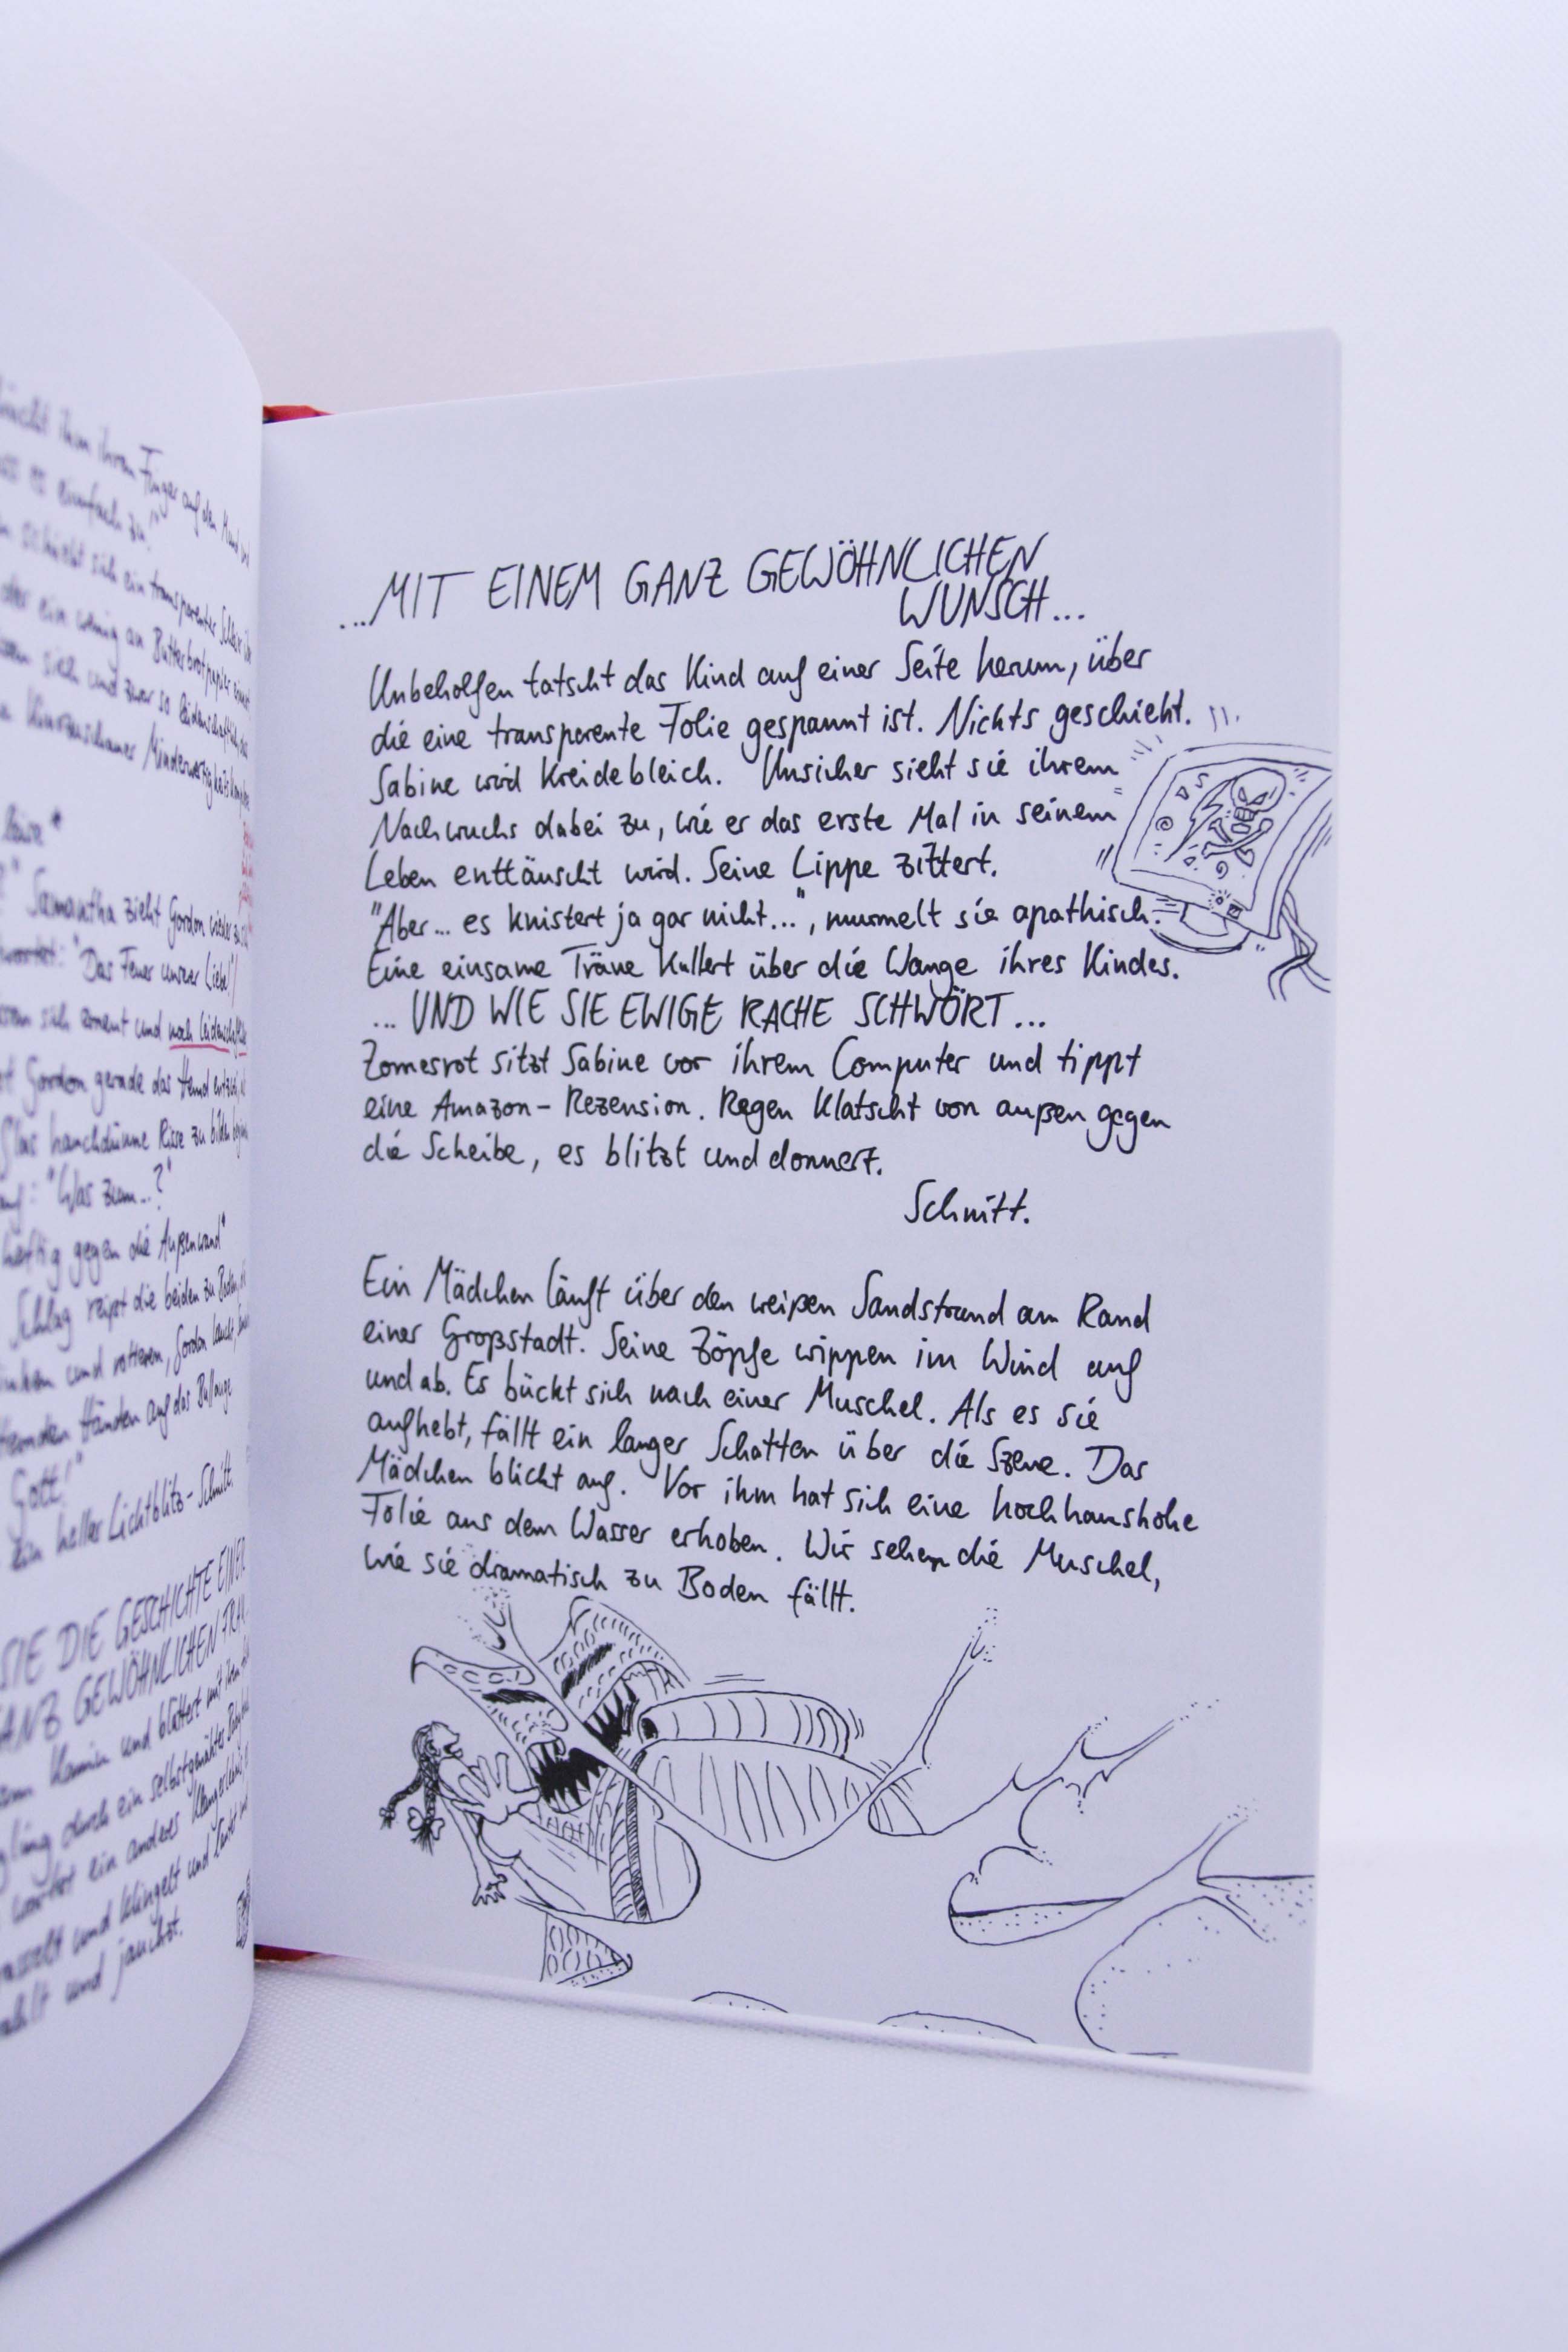 ihm ihren Finger auf den Mund
es einfach zu."
schiebt sich ein transparenter
oder ein wenig an Butterbrotpapier
sich und zwar so leidenschaftlich
Minderwertigkeitskomplexe
leise*
Samantha zieht Gordon wieder zu
"Das Feuer unserer Liebe!"
sich erneut und noch leidenschaftlicher
Gordon gerade das Hemd
hauchdünne Risse zu bilden
"Was zum...?"
heftig gegen die Außenwand*
Schlag reißt die beiden zu Boden,
und rattern, Gordon
Händen auf das Bullauge
Gott!"
Ein heller Lichtblitz - Schnitt.
SIE DIE GESCHICHTE EINER
GANZ GEWÖHNLICHEN FRAU
Kamin und blättert mit ihrem
durch ein selbstgenähtes
wartet ein anderes
und klingelt und
und jauchzt.
...MIT EINEM GANZ GEWÖHNLICHEN
WUNSCH...
Unbeholfen tatscht das Kind auf einer Seite herum, über
die eine transparente Folie gespannt ist. Nichts geschieht.
Sabine wird kreidebleich. Unsicher sieht sie ihrem
Nachwuchs dabei zu, wie er das erste Mal in seinem
Leben enttäuscht wird. Seine Lippe zittert.
"Aber... es knistert ja gar nicht...", murmelt sie apathisch.
Eine einsame Träne kullert über die Wange ihres Kindes.
... UND WIE SIE EWIGE RACHE SCHWÖRT...
Zornesrot sitzt Sabine vor ihrem Computer und tippt
eine Amazon-Rezension. Regen klatscht von außen gegen
die Scheibe, es blitzt und donnert.
Schnitt.
Ein Mädchen läuft über den weißen Sandstrand am Rand
einer Großstadt. Seine Zöpfe wippen im Wind auf
und ab. Es bückt sich nach einer Muschel. Als es sie
aufhebt, fällt ein langer Schatten über die Szene. Das
Mädchen blickt auf. Vor ihm hat sich eine hochhaushohe
Folie aus dem Wasser erhoben. Wir sehen die Muschel,
wie sie dramatisch zu Boden fällt.